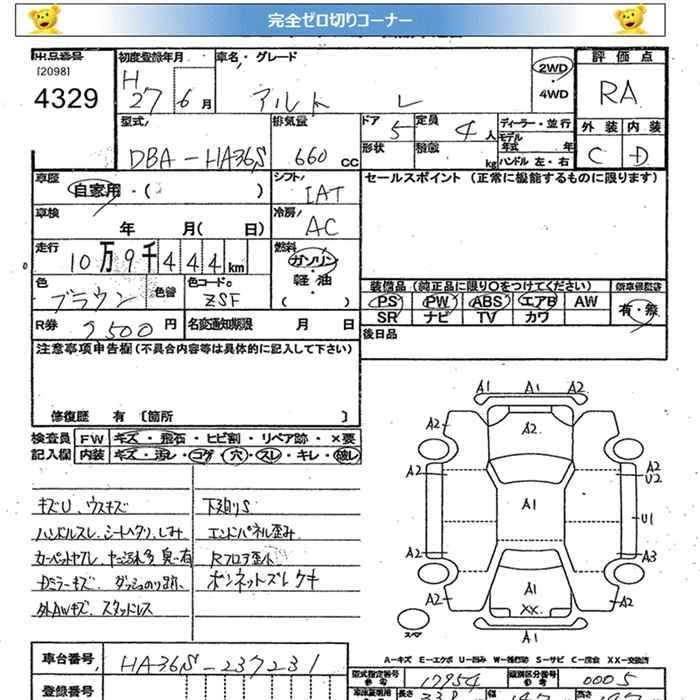 完全ゼロ切りコーナー
出品番号 初度登録年月 車名・グレード 評価点
[2098] H 2WD
4329 27 6月 アルト L 4WD RA
型式 排気量 ドア 5 定員 4人 ディーラー・並行 外装 内装
モデル年式 年
DBA-HA36S 660cc 形状 積載 kg ハンドル 左・右 C D
車歴 シフト セールスポイント (正常に機能するものに限ります)
自家用・( ) IAT
車検 冷房
年 月( 日) AC
走行 燃料
10万9千444km ガソリン・
色 色替 色コードNo. 軽油・
ブラウン ZSF ( )
装備品 (純正品に限り○をつけてください) 新車保証書
PS PW ABS エアB AW 有・無
SR ナビ TV カワ
R券 9500円 名変通知期限 月 日 後日品
注意事項申告欄(不具合内容等は具体的に記入して下さい)
修復歴 有 〔箇所 〕
検査員 FW キズ・飛石・ヒビ割・リペア跡・×要
記入欄 内装 キズ・汚レ・コゲ・穴・スレ・キレ・破レ
キズU、ウスキズ 下廻りS
ハンドルスレ、シートヘタリ、しみ エンドパネル歪み
Rフロア歪み
Dミラーキズ ボンネットズレ
外AWキズ、スタッドレス
A1 A1 A2
A2 A2 A2
A2 A1 A2 U2
U1
A2 A3
A2 A1 XX A2
A1
スペア
A-キズ E-エクボ U-凹み W-補修跡 S-サビ C-腐食 XX-交換済
車台番号 HA36S-237231
型式指定番号 17954 類別区分番号 0005
登録番号